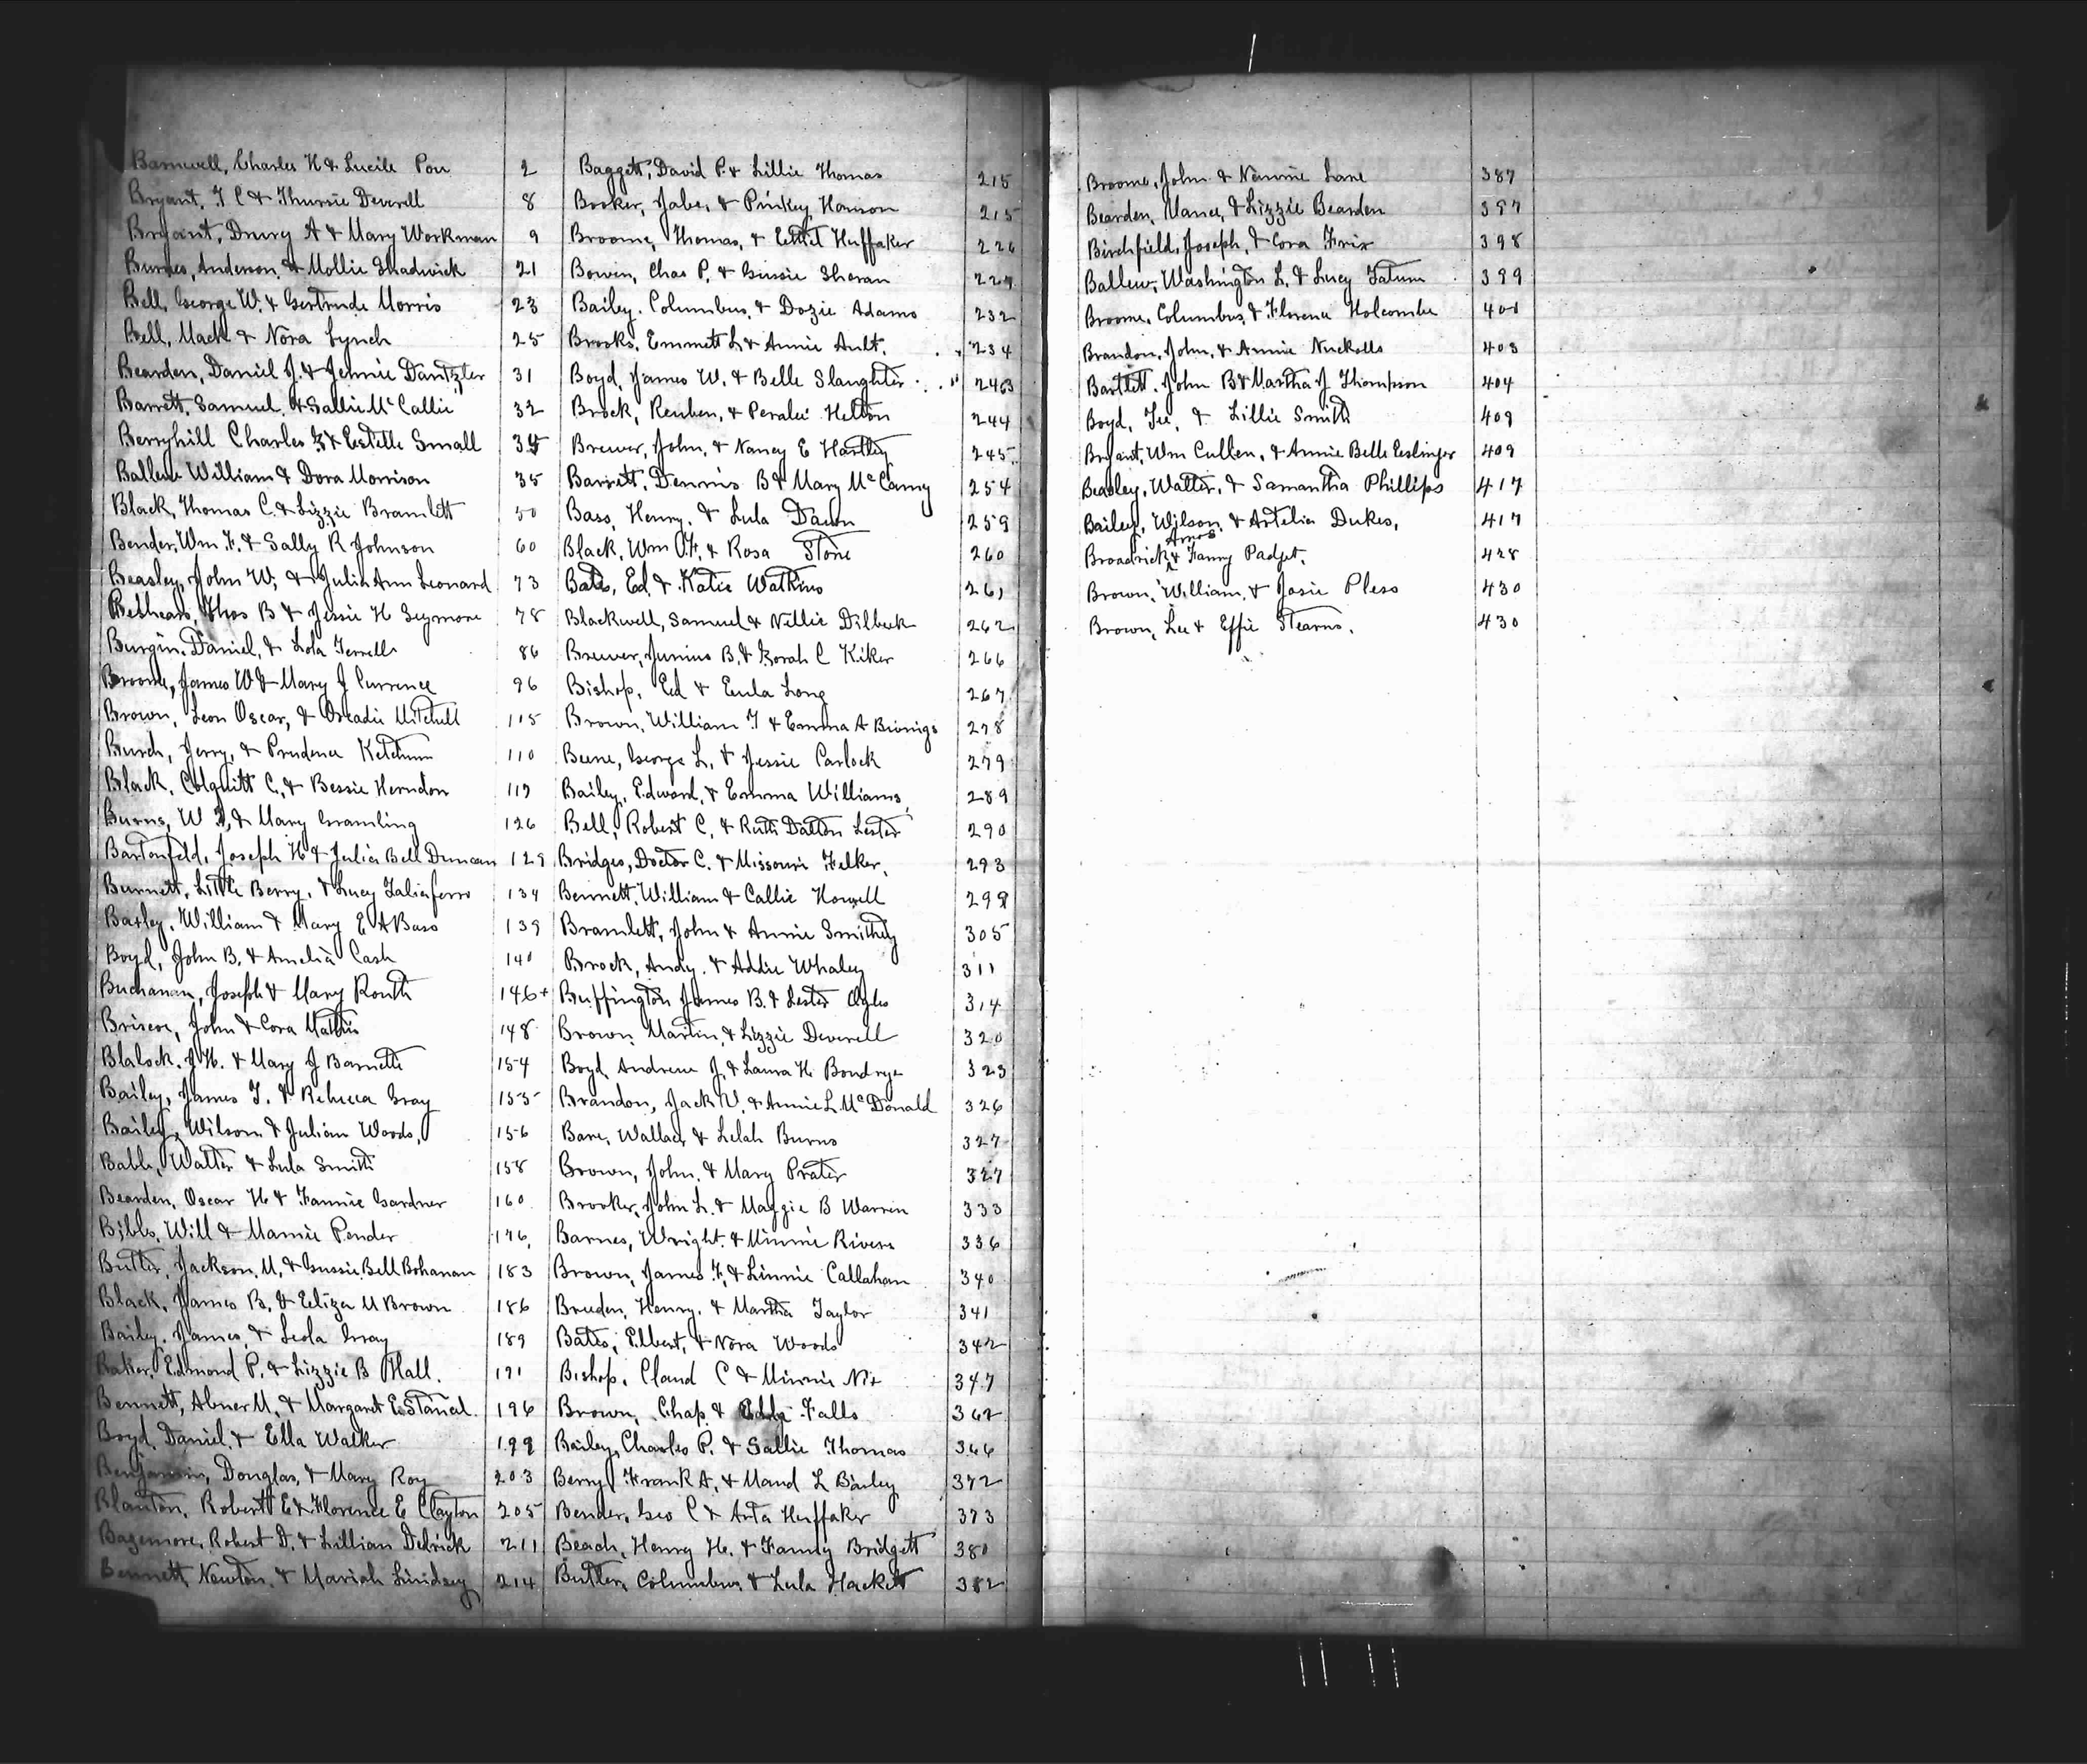 Barnwell, Charles H & Lucile Pou 2
Bryant, T C & Thursie Deverell 8
Bryant, Drury A & Mary Workman 9
Burnes, Anderson, & Mollie Shadwick 21
Bell, George W. & Gertrude Morris 23
Bell, Mack & Nora Lynch 25
Bearden, Daniel J. & Jennie Dantzler 31
Barrett, Samuel, & Sallie McCallie 32
Berryhill Charles & Estelle Small 34
Ballew William & Dora Morrison 35
Black, Thomas C. & Lizzie Bramlett 50
Bender, Wm F. & Sally R Johnson 60
Beasley, John W, & Julia Ann Leonard 73
Thos B & Jessie H Seymore 78
Burgin, Daniel, & Lola Terrell 86
Broome, James W & Mary J Currence 96
Brown, Leon Oscar, & Ocadie Mitchell 115
Burch, Jerry, & Prudence Ketchum 110
Black, Colquitt C, & Bessie Herndon 119
Burns, W & Mary Gramling 126
Bartenfeld, Joseph H & Julia Bell Duncan 129
Burnett, Little Berry, & Lucy Taliaferro 134
Baxley, William & Mary E A Bass 139
Boyd, John B. & Amelia Cash 140
Buchanan, Joseph & Mary Routh 146+
Briscoe, John & Cora Mathis 148
Blalock, J H. & Mary J Barnett 154
Bailey, James T. & Rebecca Gray 155
Bailey, Wilson & Julian Woods, 156
Babb, Walter & Lula Smith 158
Bearden, Oscar H & Fannie Gardner 160
Bibbs, Will & Mamie Pender 176
Butler, Jackson, M, & Gussie Bell Bohanan 183
Black, James B. & Eliza M Brown 186
Bailey, James, & Leola Gray 189
Baker, Edmond P. & Lizzie B Hall. 191
Bennett, Abner M. & Margaret E. Stancil 196
Boyd, Daniel & Ella Walker 199
Benjamin, Douglas, & Mary Roy 203
Blanton, Robert E & Florence E Clayton 205
Bazemore, Robert D. & Lillian Dedrick 211
Bennett, Newton, & Mariah Lindsey 214
Baggett, David P. & Lillie Thomas 215
Booker, Jabe, & Pinkey Honson 215
Broome, Thomas, & Ethel Huffaker 226
Bowen, Chas P. & Gussie Sharan 227
Bailey, Columbus, & Dozie Adams 232
Brooks, Emmett L & Annie Ault. 234
Boyd, James W. & Belle Slaughter 243
Brock, Reuben, & Peralee Helton 244
Brewer, John, & Nancy E Hartley 245
Barrett, Dennis B & Mary McCamy 254
Bass, Henry, & Lula Dawn 259
Black, Wm O.F. & Rosa Stone 260
Bates, Ed. & Katie Watkins 261
Blackwell, Samuel & Nellie Dilbeck 262
Brewer, Junius B. & Zorah C Kiker 266
Bishop, Ed & Eula Long 267
Brown, William T & Emma A 278
Bune, George L, & Jessie Carlock 279
Bailey, Edward, & Emma Williams 289
Bell, Robert C, & Ruth Dalton Lester 290
Bridges, Doctor C. & Missouri Felker, 293
Bennett, William & Callie Howell 299
Bramlett, John & Annie Smithey 305
Brock, Andy, & Addie Whaley 311
Buffington James B. & Lester Ogles 314
Brown, Martin, & Lizzie Deverell 320
Boyd, Andrew J. & Laura H. 323
Brandon, Jack W. & Annie L. McDonald 326
Bare, Wallace & Lelah Burns 327
Brown, John, & Mary Prater 327
Brooker, John L. & Maggie B Warren 333
Barnes, Wright, & Minnie Rivers 336
Brown, James F, & Linnie Callahan 340
Bruden, Henry, & Martha Taylor 341
Bates, Elbert, & Nora Woods 342
Bishop, Claud C & Minnie Nix 347
Brown, Chap, & Falls 362
Bailey, Charles P. & Sallie Thomas 366
Berry, Frank A, & Maud L Bailey 372
Bender, Geo C & Arta Huffaker 373
Beach, Henry H. & Fanny Bridgett 380
Butler, Columbus, & Lula Hackett 382
Broome, John & Nannie Lane 387
Bearden, Mance, & Lizzie Bearden 397
Birchfield, Joseph, & Cora Frix 398
Ballew, Washington L. & Lucy Tatum 399
Broome, Columbus, & Florence Holcombe 401
Brandon, John, & Annie Nuckolls 403
Bartlett, John B & Martha J Thompson 404
Boyd, Tee, & Lillie Smith 409
Bryant, Wm Cullen, & Annie Belle Eslinger 409
Beasley, Walter, & Samantha Phillips 417
Bailey, Wilson, & Artelia Dukes, 417
Broadrick Amos & Fanny Padget, 428
Brown, William, & Josie Pless 430
Brown, Lee & Effie Stearns, 430